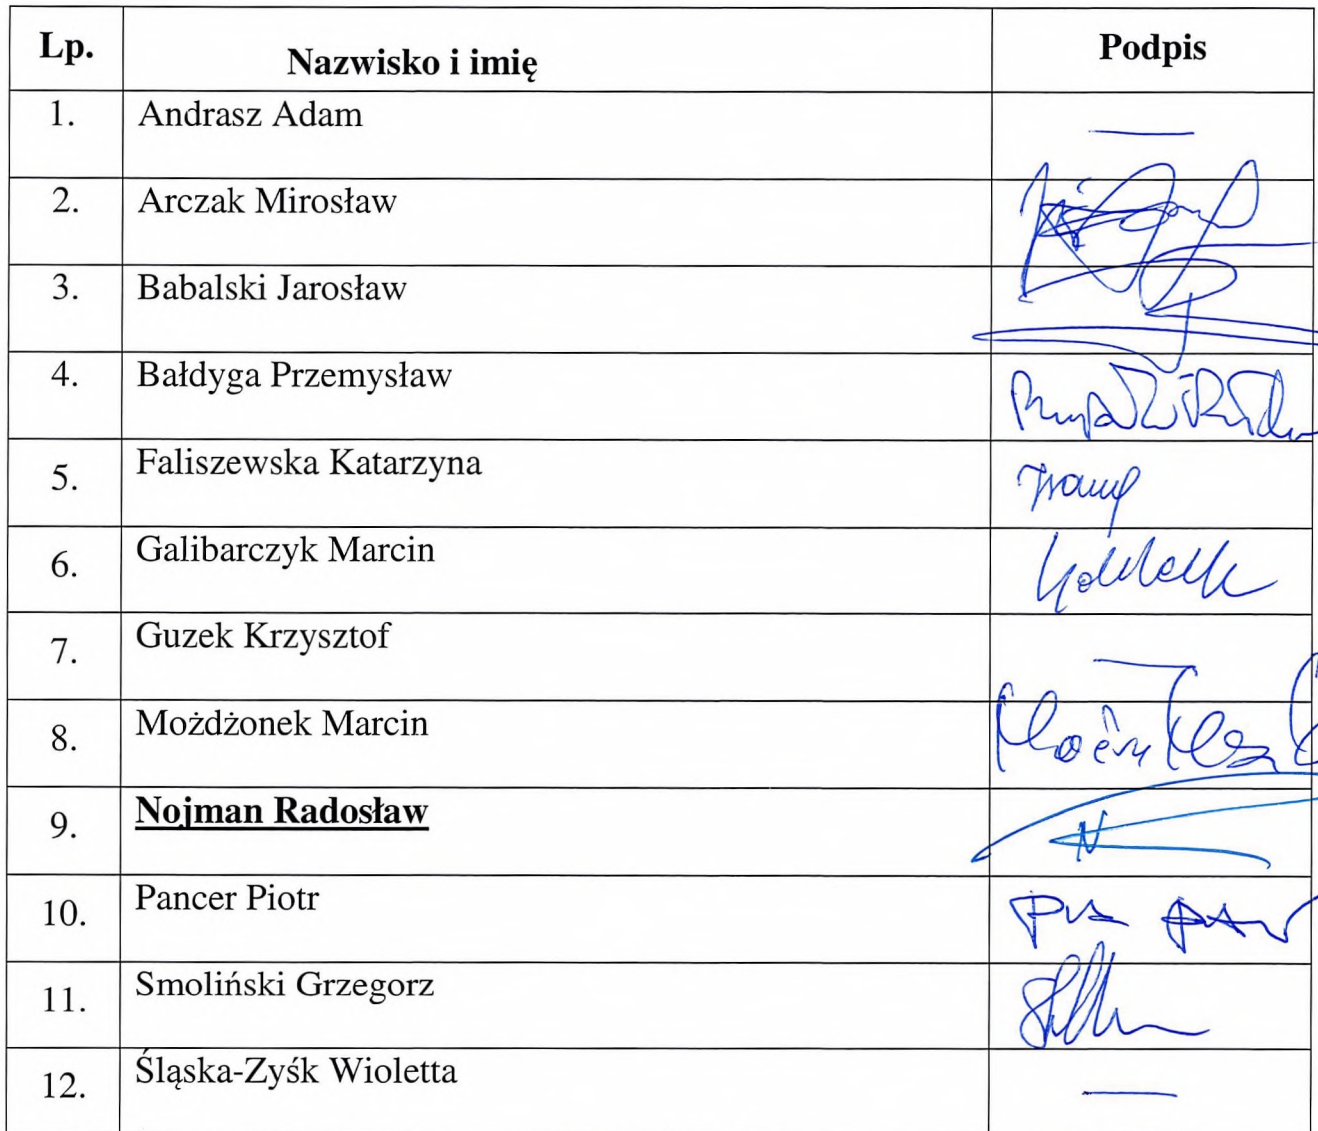 Lp. Nazwisko i imię Podpis
1. Andrasz Adam —
2. Arczak Mirosław
3. Babalski Jarosław
4. Bałdyga Przemysław
5. Faliszewska Katarzyna
6. Galibarczyk Marcin
7. Guzek Krzysztof —
8. Możdżonek Marcin
9. Nojman Radosław
10. Pancer Piotr
11. Smoliński Grzegorz
12. Śląska-Zyśk Wioletta —